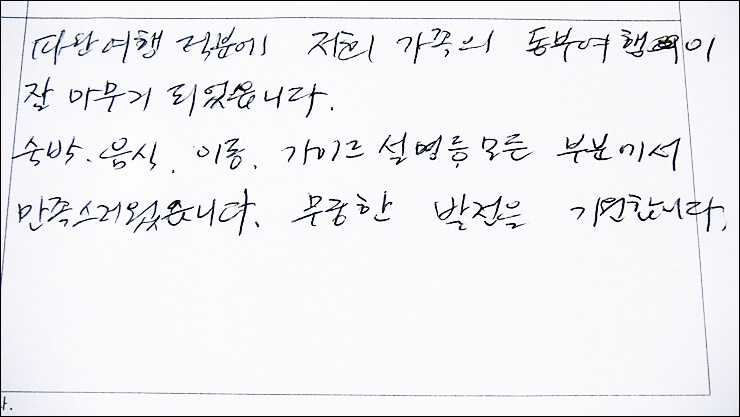 따라여행 덕분에 저희 가족의 동부여행이
잘 마무리 되었습니다.
숙박. 음식. 이동. 가이드 설명등 모든 부분에서
만족스러웠습니다. 무궁한 발전을 기원합니다.
다.